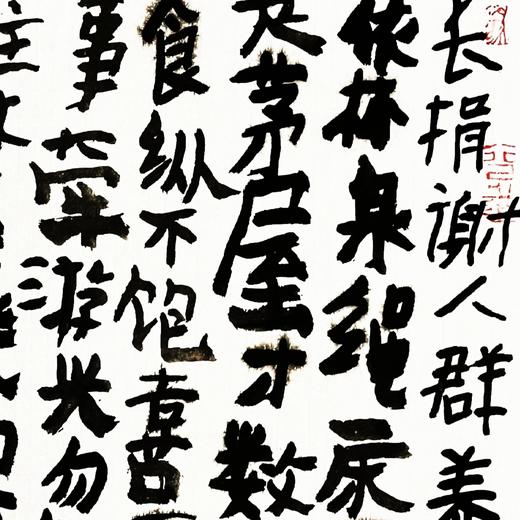 长揖谢人群养
依林泉绳床
茅屋才数
食纵不饱喜
事牵游兴勿